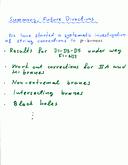 Summary, Future Directions
We have started a systematic investigation
of string corrections to p-branes
• Results for D1-D3-D5 under way
• Work out corrections for IIA and
M-branes
• Non-extremal branes
• Intersecting branes
• Black holes